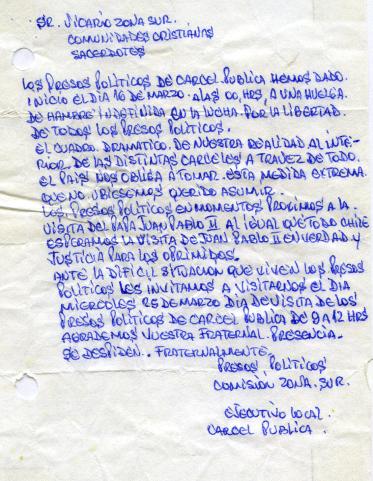 SR. VICARIO ZONA SUR.
COMUNIDADES CRISTIANAS
SACERDOTES
LOS PRESOS POLITICOS DE CARCEL PUBLICA HEMOS DADO.
INICIO EL DIA 16 DE MARZO. A LAS 00, HRS, A UNA HUELGA.
DE HAMBRE INDEFINIDA EN LA LUCHA. POR LA LIBERTAD.
DE TODOS LOS PRESOS POLITICOS.
EL CUADRO. DRAMATICO. DE NUESTRA REALIDAD AL INTE-
RIOR. DE LAS DISTINTAS CARCELES A TRAVEZ DE TODO.
EL PAIS NOS OBLIGA A TOMAR. ESTA MEDIDA EXTREMA.
QUE NO UBIESEMOS QUERIDO ASUMIR.
LOS PRESOS POLITICOS EN MOMENTOS PROXIMOS A LA.
VISITA DEL PAPA JUAN PABLO II. AL IGUAL QUE TODO CHILE
ESPERAMOS LA VISITA DE JUAN PABLO II EN VERDAD. Y
JUSTICIA PARA LOS OPRIMIDOS.
ANTE LA DIFICIL SITUACION QUE VIVEN LOS PRESOS
POLITICOS LES INVITAMOS A VISITARNOS EL DIA
MIERCOLES 25 DE MARZO DIA DE VISITA DE LOS
PRESOS POLITICOS DE CARCEL PUBLICA DE 9 A 12 HRS
AGRADEMOS VUESTRA FRATERNAL. PRESENCIA.
SE DESPIDEN. FRATERNALMENTE.
PRESOS POLITICOS
COMISIÓN ZONA. SUR.
EJECUTIVO LOCAL.
CARCEL PUBLICA.